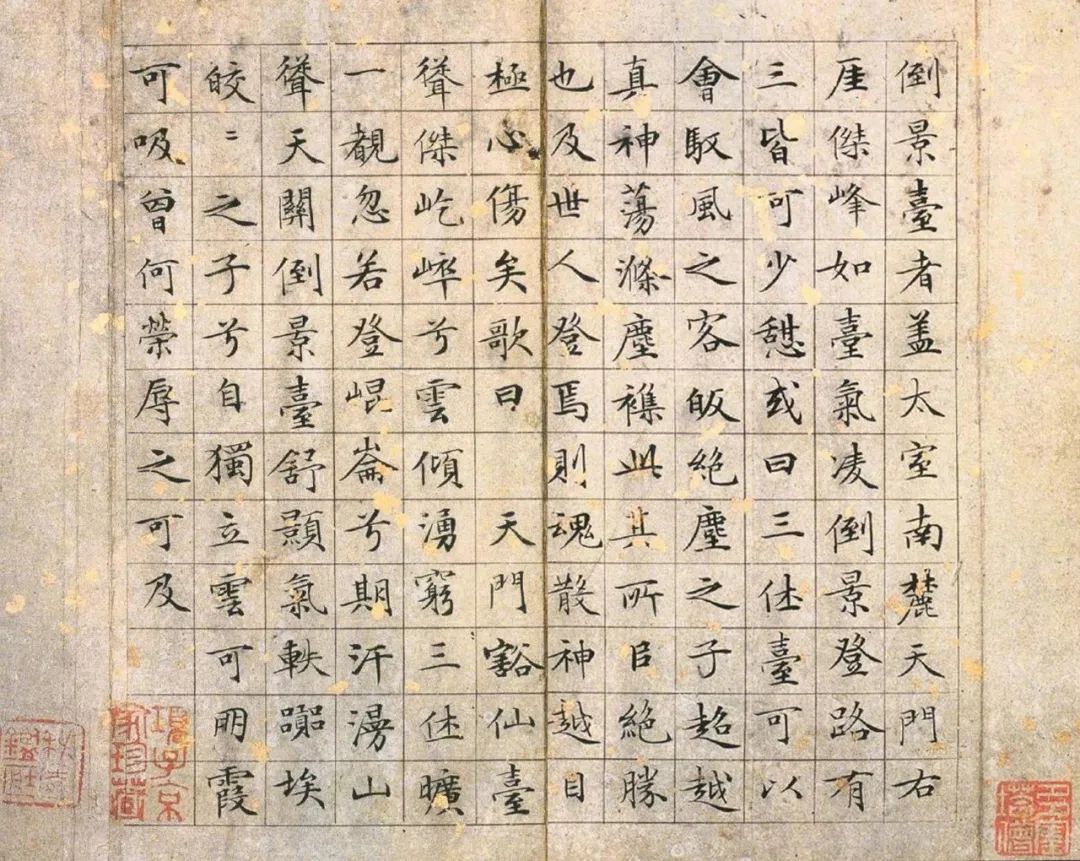 倒景臺者盖太室南麓天門右
厓傑峰如臺氣凌倒景登路有
三皆可少憇或曰三休臺可以
會馭風之客皈絕塵之子超越
真神蕩滌塵襟此其所㠯絕勝
也及世人登焉則魂散神越目
極心傷矣歌曰 天門豁仙臺
聳傑屹崒兮雲傾湧窮三休曠
一覩忽若登崐崙兮期汗漫山
聳天關倒景臺舒顥氣軼囂埃
皎〻之子兮自獨立雲可朋霞
可吸曾何榮辱之可及
項子京家珍藏